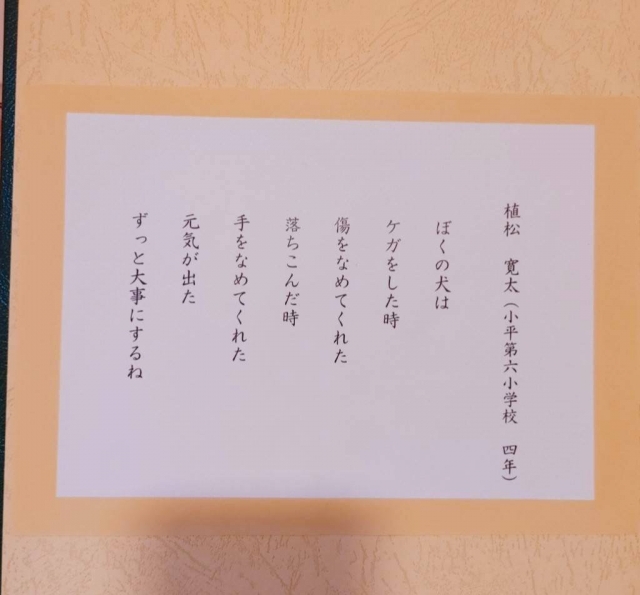 植松　寛太（小平第六小学校　四年）
ぼくの犬は
ケガをした時
傷をなめてくれた
落ちこんだ時
手をなめてくれた
元気が出た
ずっと大事にするね